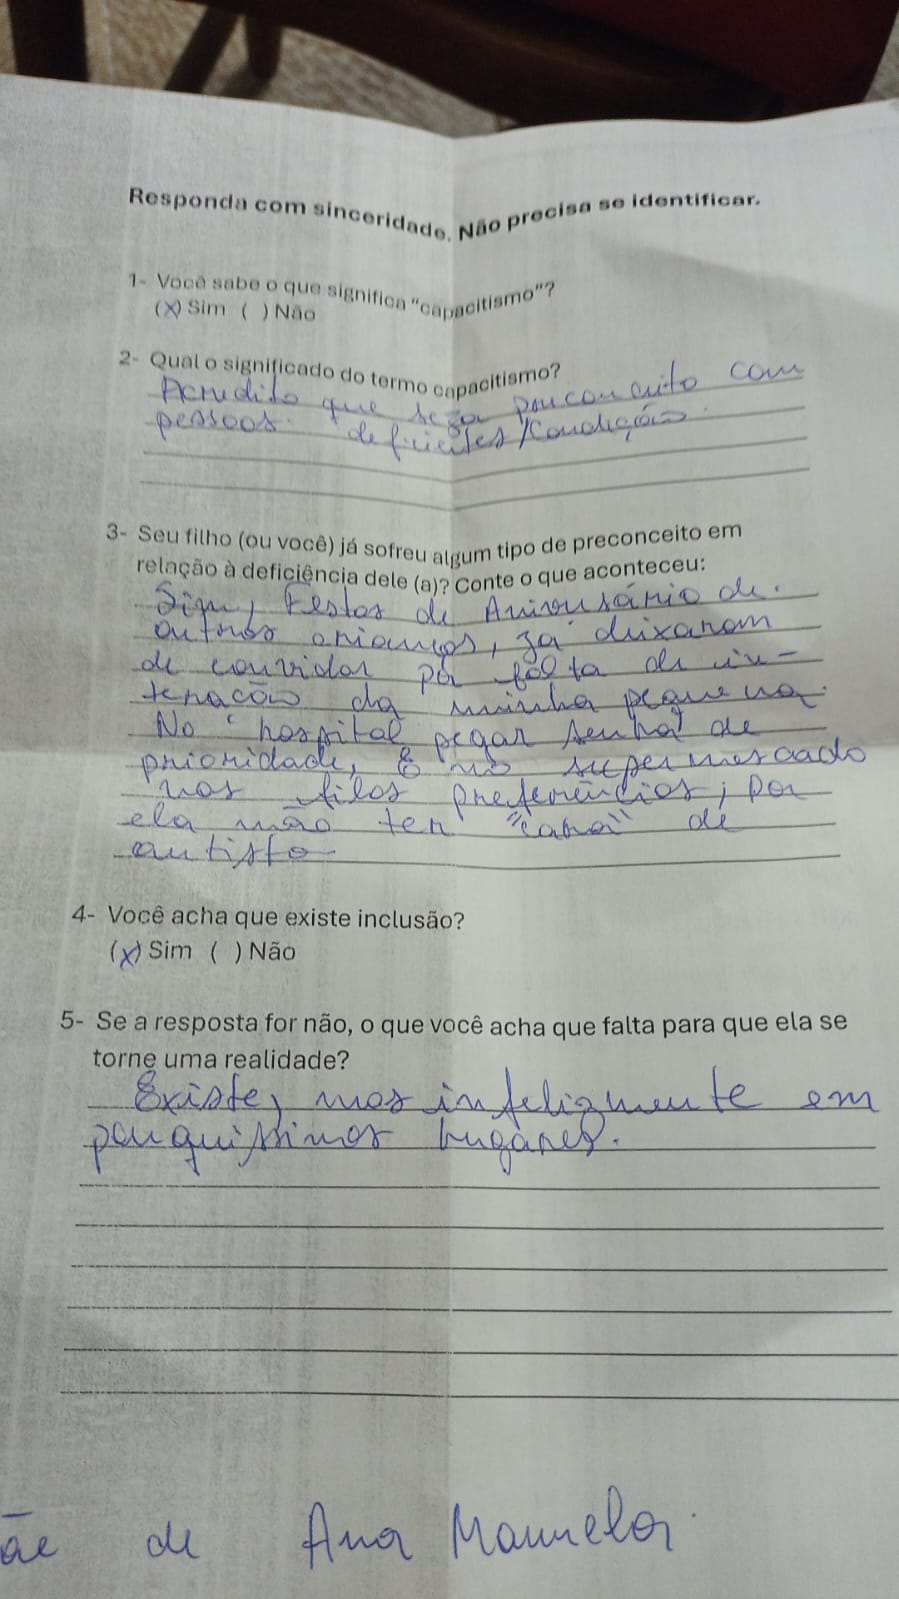 Responda com sinceridade. Não precisa se identificar.
1- Você sabe o que significa "capacitismo"?
(X) Sim ( ) Não
2- Qual o significado do termo capacitismo?
Acredito que seja preconceito com
pessoas deficientes/Condição.
3- Seu filho (ou você) já sofreu algum tipo de preconceito em
relação à deficiência dele (a)? Conte o que aconteceu:
Sim, Festas de Aniversário de
outras crianças, já deixaram
de convidar por falta de in-
teração da minha pequena.
No hospital pegar senha de
prioridade, E no supermercado
nas filas preferências, por
ela não ter "cara" de
autista
4- Você acha que existe inclusão?
(X) Sim ( ) Não
5- Se a resposta for não, o que você acha que falta para que ela se
torne uma realidade?
Existe, mas infelizmente em
pouquíssimos lugares.
ãe de Ana Manuela.